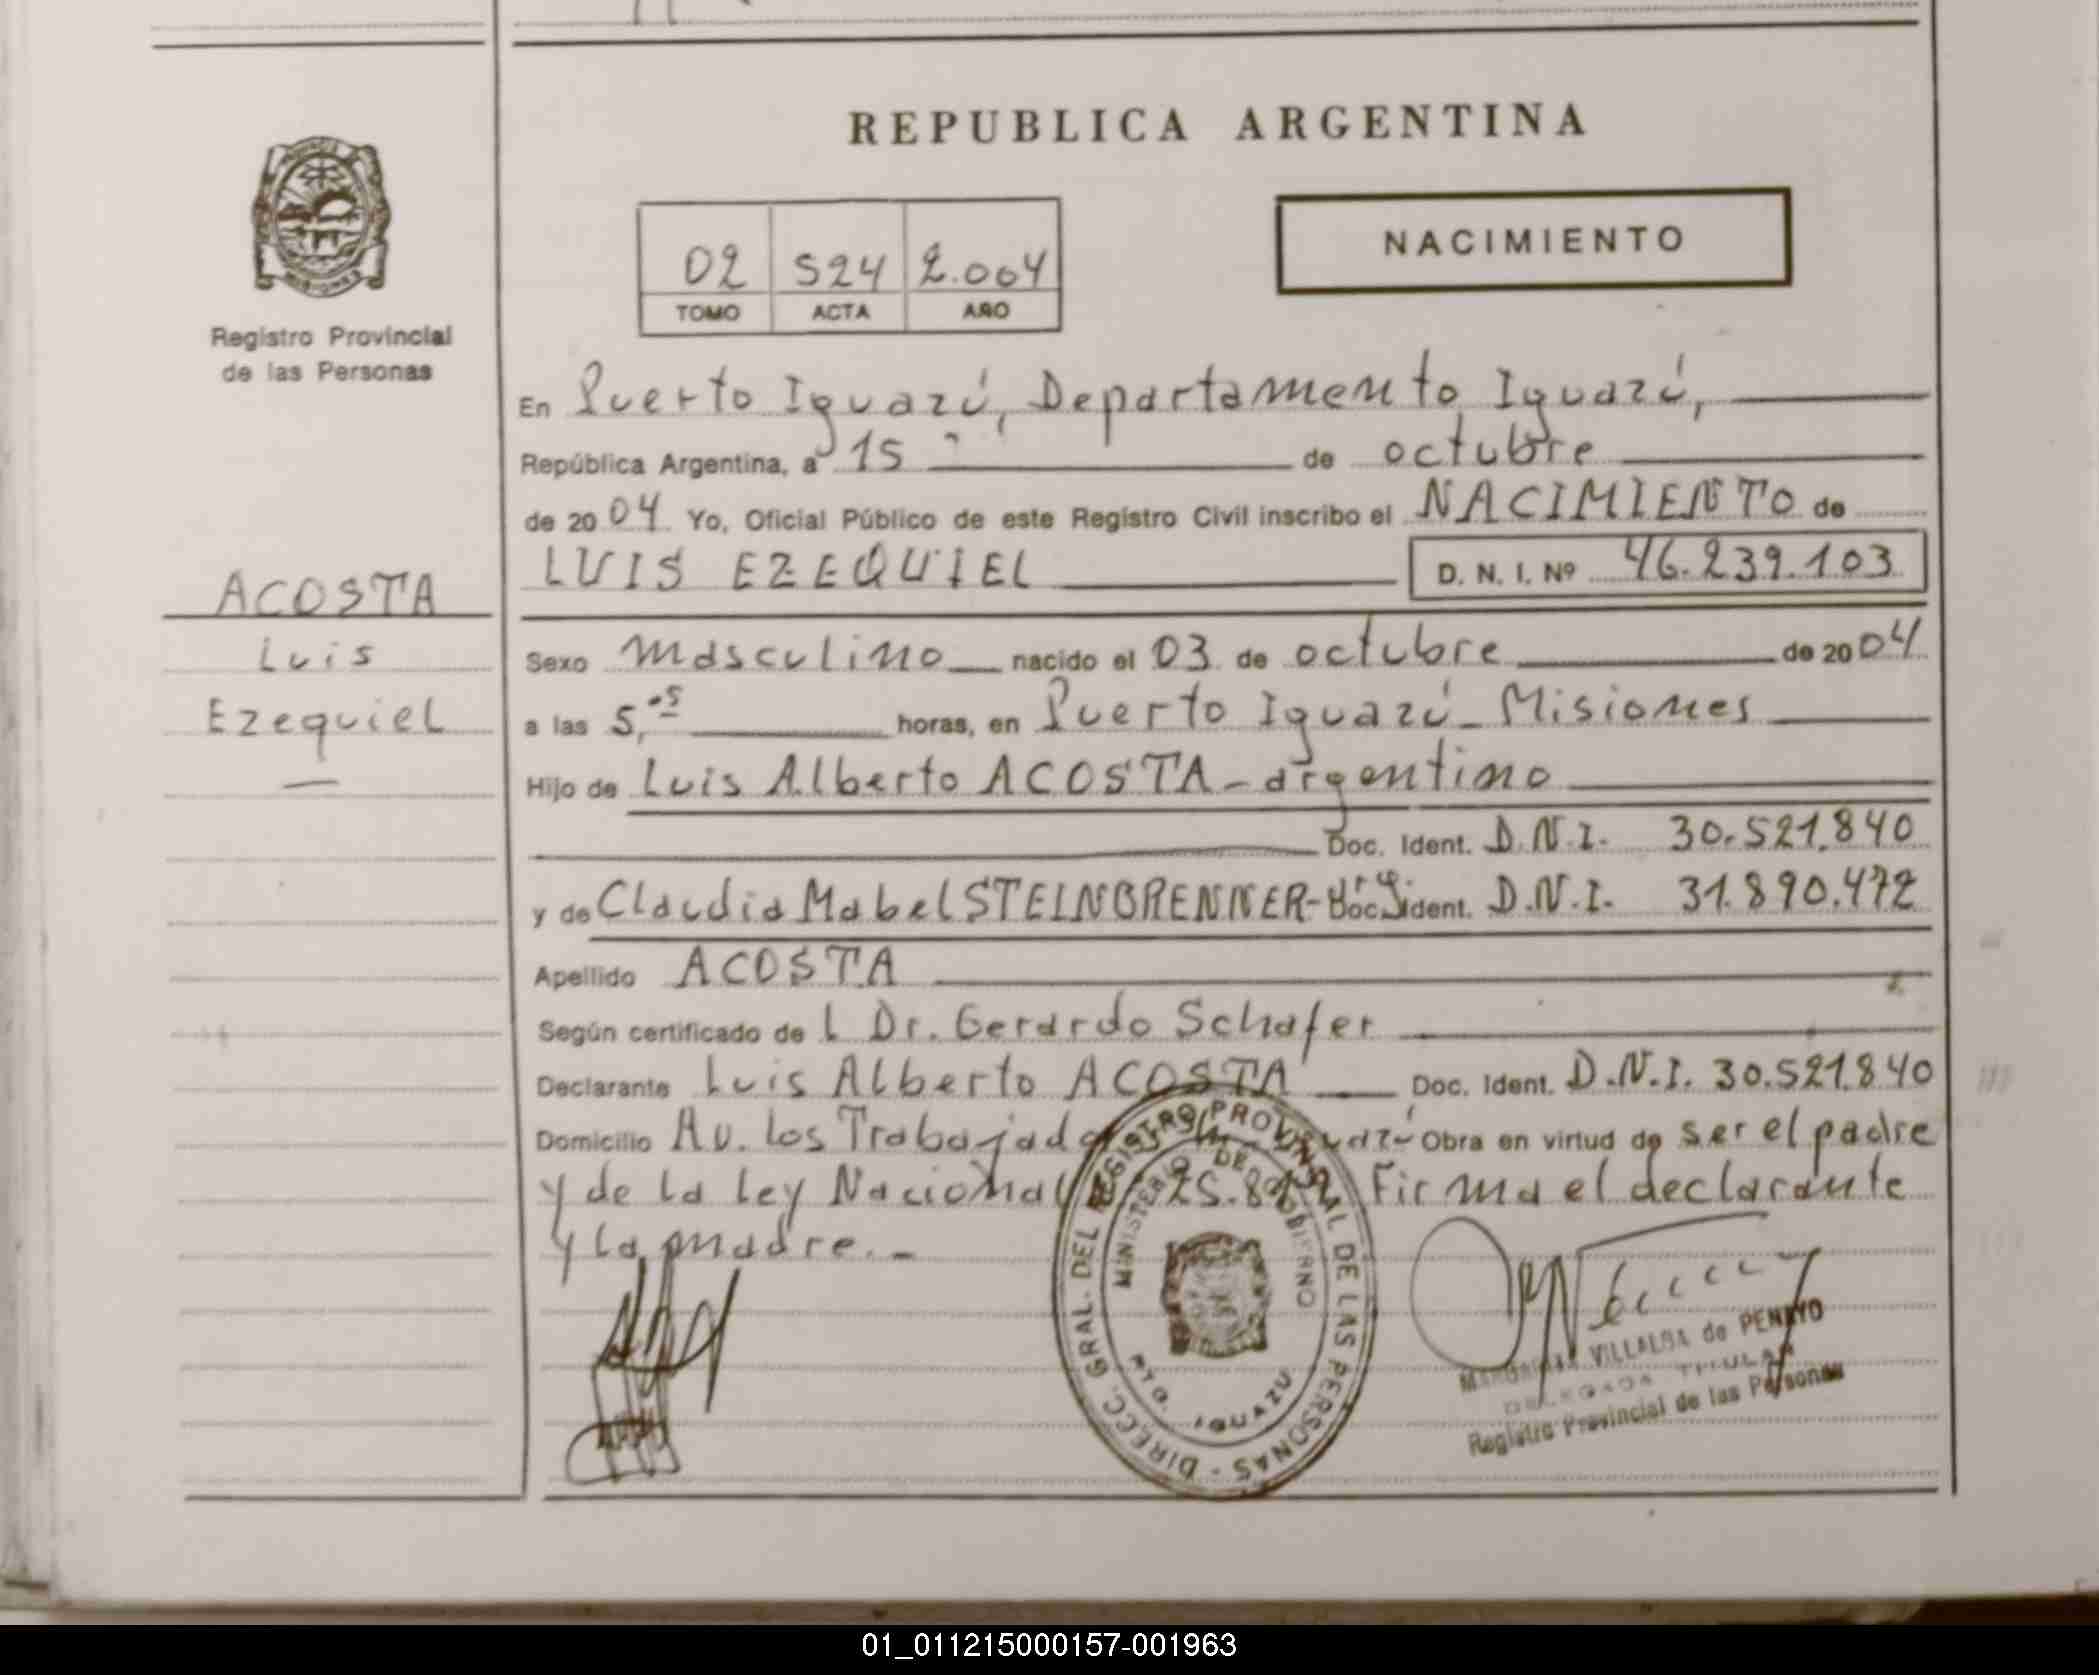 REPUBLICA ARGENTINA
NACIMIENTO
02 524 2.004
TOMO ACTA AÑO
Registro Provincial
de las Personas
En Puerto Iguazú, Departamento Iguazú,
República Argentina, a 15 de octubre
de 2004 Yo, Oficial Público de este Registro Civil inscribo el NACIMIENTO de
LUIS EZEQUIEL D. N. I. Nº 46.239.103
ACOSTA
Luis
Ezequiel
Sexo masculino nacido el 03 de octubre de 2004
a las 5,05 horas, en Puerto Iguazú - Misiones
Hijo de Luis Alberto ACOSTA - argentino
Doc. Ident. D.N.I. 30.521.840
y de Claudia Mabel STEINBRENNER - Doc. Ident. D.N.I. 31.890.472
Apellido ACOSTA
Según certificado de l Dr. Gerardo Schafer
Declarante Luis Alberto ACOSTA Doc. Ident. D.N.I. 30.521.840
Domicilio Av. Los Obra en virtud de ser el padre
y de la Ley Nacional Firma el declarante
y la madre. -
DIRECC. GRAL. DEL REGISTRO PROVINCIAL DE LAS PERSONAS -
MINISTERIO DE GOBIERNO
PTO. IGUAZU
VILLALBA de PENAYO
DELEGADA TITULAR
Registro Provincial de las Personas
01_011215000157-001963